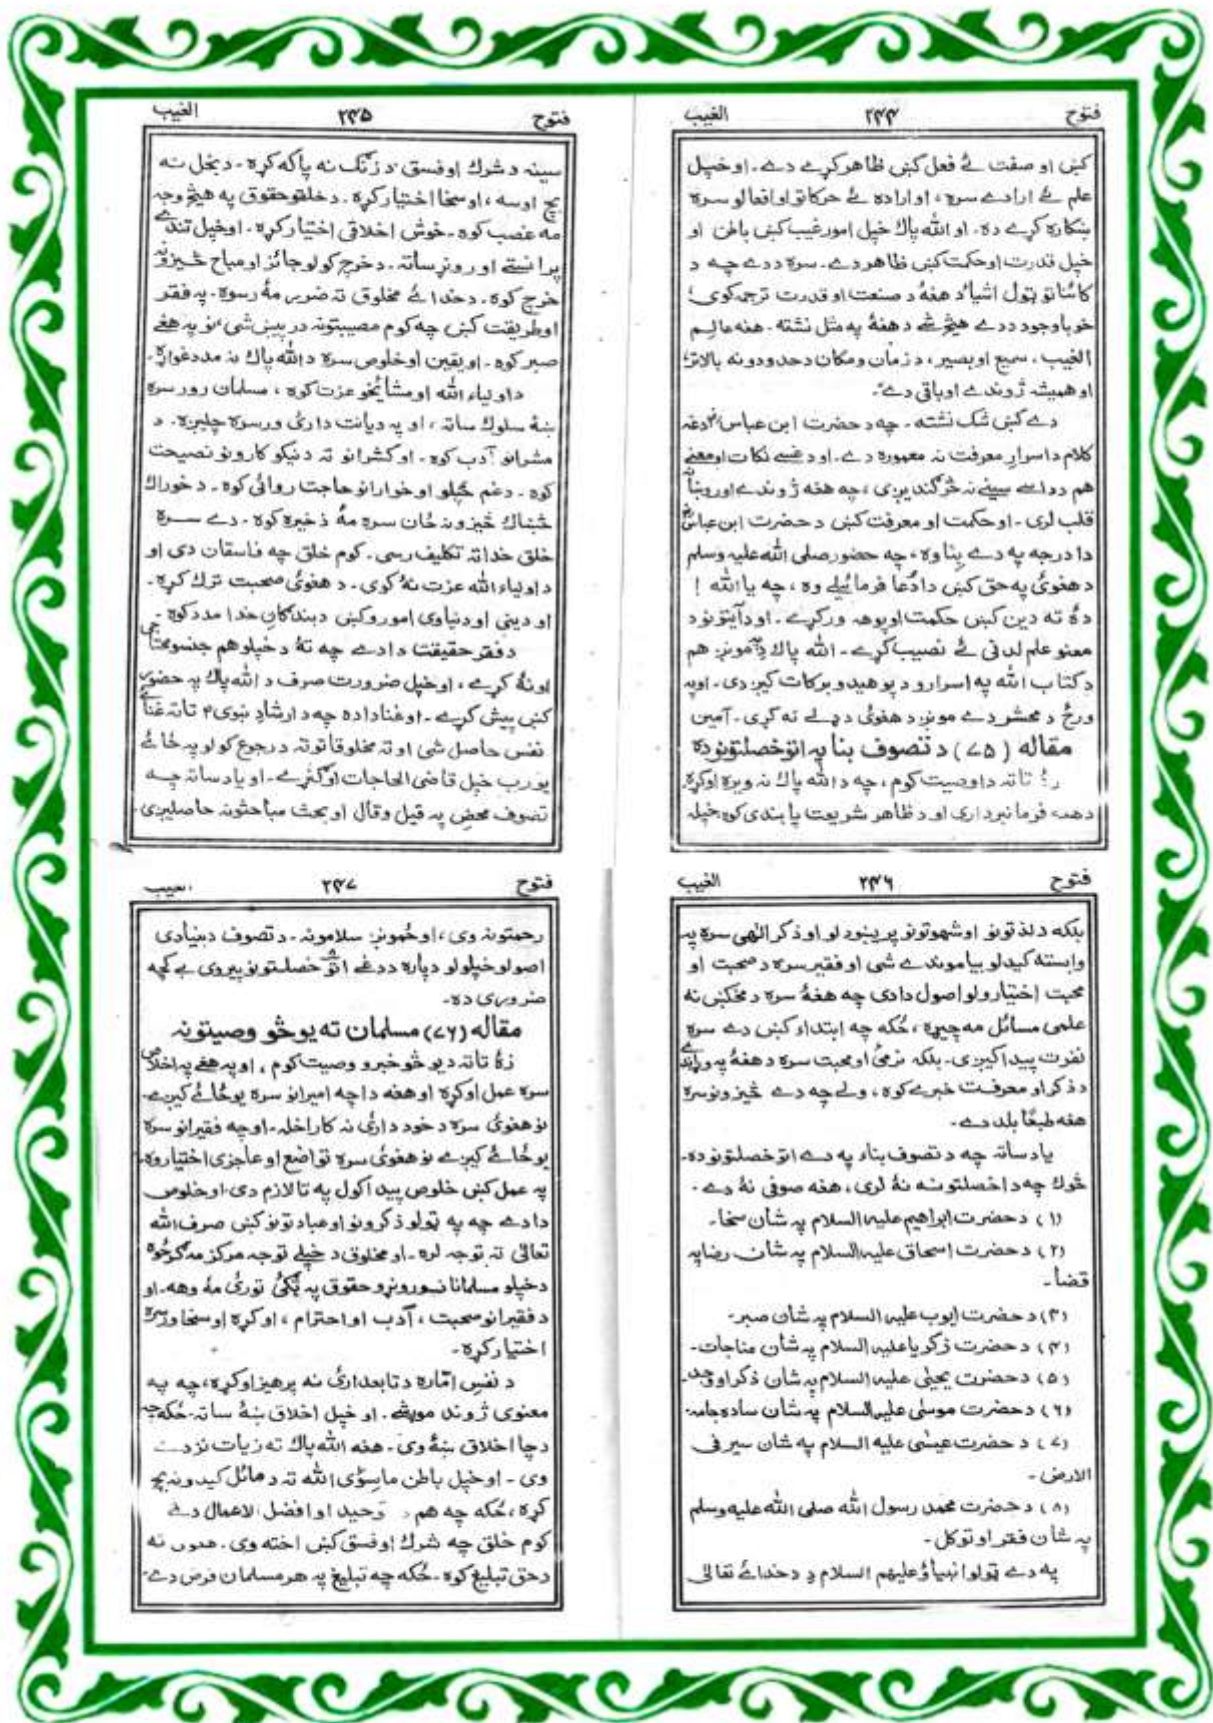 فتوح ۲۴۴ الغیب
کښ او صفت ئے فعل کښ ظاهر کړے دے۔ او خپل
علم ئے ارادے سره، او اراده ئے حرکاتو او افعالو سره
ښکاره کړے ده۔ او الله پاك خپل امور غیب کښ باطن او
خپل قدرت او حکمت کښ ظاهر دے۔ سره ددے چه د
کائناتو ټول اشیاء د هغهٔ د صنعت او قدرت ترجمه کوی؛
خو باوجود ددے هیڅ شے د هغهٔ په مثل نشته۔ هغه عالِم
الغیب، سمیع او بصیر، د زمان ومکان د حدودو نه بالاتر؛
او همیشه ژوندے او باقی دے۔
دے کښ شك نشته۔ چه د حضرت ابن عباس دغه
کلام د اسرارِ معرفت نه معموره دے۔ او د غسے نکات او معنے
هم د داسے سینے نه څرګندیږی، چه هغه ژوندے او روښانه
قلب لری۔ او حکمت او معرفت کښ د حضرت ابن عباس
دا درجه په دے بنا وه، چه حضور صلی الله علیه وسلم
د هغویٔ په حق کښ دا دُعا فرمائیلے وه، چه یا الله !
دهٔ ته دین کښ حکمت او پوهه ورکړے۔ او د آیتونو د
معنو علم لدنی ئے نصیب کړے۔ الله پاك دِ مونږ هم
د کتاب الله په اسرارو د پوهیدو برکات کیږدی۔ او په
ورځ د محشر دے مونږ د هغویٔ د ډلے نه کړی۔ آمین
مقاله (۷۵) د تصوف بنا په اتو خصلتونو ده
تاته دا وصیت کوم، چه د الله پاك نه ویره اوکړه
دهغه فرمانبرداری او د ظاهر شریعت پابندی کوه، خپله
فتوح ۲۴۵ الغیب
سینه د شرك او فسق د زنګ نه پاکه کړه۔ د بخل نه
بچ اوسه، او سخا اختیار کړه۔ د خلقو حقوق په هیڅ وجه
مه غصب کوه۔ خوش اخلاقی اختیار کړه۔ او خپل تندے
پرانستے او روڼ ساته۔ د خرچ کولو جائز او مباح څیزونه
خرچ کوه۔ د خدائے مخلوق ته ضرر مهٔ رسوه۔ په فقر
او طریقت کښ چه کوم مصیبتونه درپیش شی، نو په هغے
صبر کوه۔ او یقین او خلوص سره د الله پاك نه مدد غواړه۔
د اولیاء الله او مشائخو عزت کوه، مسلمان رور سره
ښهٔ سلوك ساته، او په دیانت داریٔ ورسره چلیږه۔ د
مشرانو آدب کوه۔ او کشرانو ته د نیکو کارونو نصیحت
کوه۔ د غم ځپلو او خوارانو حاجت روائی کوه۔ د خوراك
څښاك څیزونه ځان سره مهٔ ذخیره کوه۔ دے سره
خلق خدا ته تکلیف رسی۔ کوم خلق چه فاسقان دی او
د اولیاء الله عزت نهٔ کوی۔ د هغویٔ صحبت ترك کړه۔
او دینی او دنیاوی امورو کښ د بندګانِ خدا مدد کوه۔
د فقر حقیقت دا دے چه تهٔ د خپلو هم جنسو محتاجی
اونهٔ کړے، او خپل ضرورت صرف د الله پاك په حضور
کښ پیش کړے۔ او غنا دا ده چه د ارشادِ نبوی تاته غنائے
نفس حاصل شی او ته مخلوقاتو ته د رجوع کولو په ځائے
یو رب خپل قاضی الحاجات اوګڼړے۔ او یاد ساته چه
تصوف محض په قیل وقال او بحث مباحثو نه حاصلیږی۔
فتوح ۲۴۶ الغیب
بلکه د لذتونو او شهوتونو پریښودلو او ذکر الٰهی سره په
وابسته کیدلو بیا موندے شی او فقیر سره د صحبت او
محبت اختیارولو اصول دا دی چه هغهٔ سره د مخکښ نه
علمی مسائل مه چیړه، ځکه چه ابتداء کښ دے سره
نفرت پیدا کیږی۔ بلکه نرمیٔ او محبت سره د هغهٔ په وړاندے
د ذکر او معرفت خبرے کوه، ولے چه دے څیزونو سره
هغه طبعًا بلد دے۔
یاد ساته چه د تصوف بناء په دے اتو خصلتونو ده۔
څوك چه دا خصلتونه نهٔ لری، هغه صوفی نهٔ دے۔
(۱) د حضرت ابراهیم علیه السلام په شان سخا۔
(۲) د حضرت اسحاق علیه السلام په شان رضا په
قضا۔
(۳) د حضرت ایوب علیه السلام په شان صبر۔
(۴) د حضرت زکریا علیه السلام په شان مناجات۔
(۵) د حضرت یحیٰی علیه السلام په شان ذکر او وجد۔
(۶) د حضرت موسٰی علیه السلام په شان ساده جامه۔
(۷) د حضرت عیسٰی علیه السلام په شان سیر فی
الارض۔
(۸) د حضرت محمد رسول الله صلی الله علیه وسلم
په شان فقر او توکل۔
په دے ټولو انبیاؤ علیهم السلام دِ د خدائے تعالٰی
فتوح ۲۴۷ الغیب
رحمتونه وی، او ځمونږ سلامونه۔ د تصوف د بنیادی
اصولو خپلولو دپاره د دغے اتو خصلتونو پیروی بے کچه
ضروری ده۔
مقاله (۷۶) مسلمان ته یو څو وصیتونه
زهٔ تاته د یو څو خبرو وصیت کوم، او په هغے په اخلاص
سره عمل اوکړه او هغه دا چه امیرانو سره یو ځائے کیږے۔
نو هغویٔ سره د خود داریٔ نه کار اخله۔ او چه فقیرانو سره
یو ځائے کیږے نو هغویٔ سره تواضع او عاجزی اختیاروه۔
په عمل کښ خلوص پیدا کول په تا لازم دی او خلوص
دا دے چه په ټولو ذکرونو او عبادتونو کښ صرف الله
تعالٰی ته توجه لره۔ او مخلوق د خپلے توجه مرکز مه ګرځوه
د خپلو مسلمانانو رونړو حقوق په ټکیٔ توریٔ مهٔ وهه۔ او
د فقیرانو صحبت، آدب او احترام، اوکړه او سخا ورسره
اختیار کړه۔
د نفسِ امّاره د تابعداریٔ نه پرهیز اوکړه، چه په
معنوی ژوند موړشے۔ او خپل اخلاق ښهٔ ساته۔ ځکه چه
د چا اخلاق ښهٔ وی۔ هغه الله پاك ته زیات نزدے
وی۔ او خپل باطن ماسِوٰی الله ته د مائل کیدو نه بچ
کړه، ځکه چه هم توحید او افضل الاعمال دے
کوم خلق چه شرك او فسق کښ اخته وی۔ هغوی ته
د حق تبلیغ کوه۔ ځکه چه تبلیغ په هر مسلمان فرض دے۔